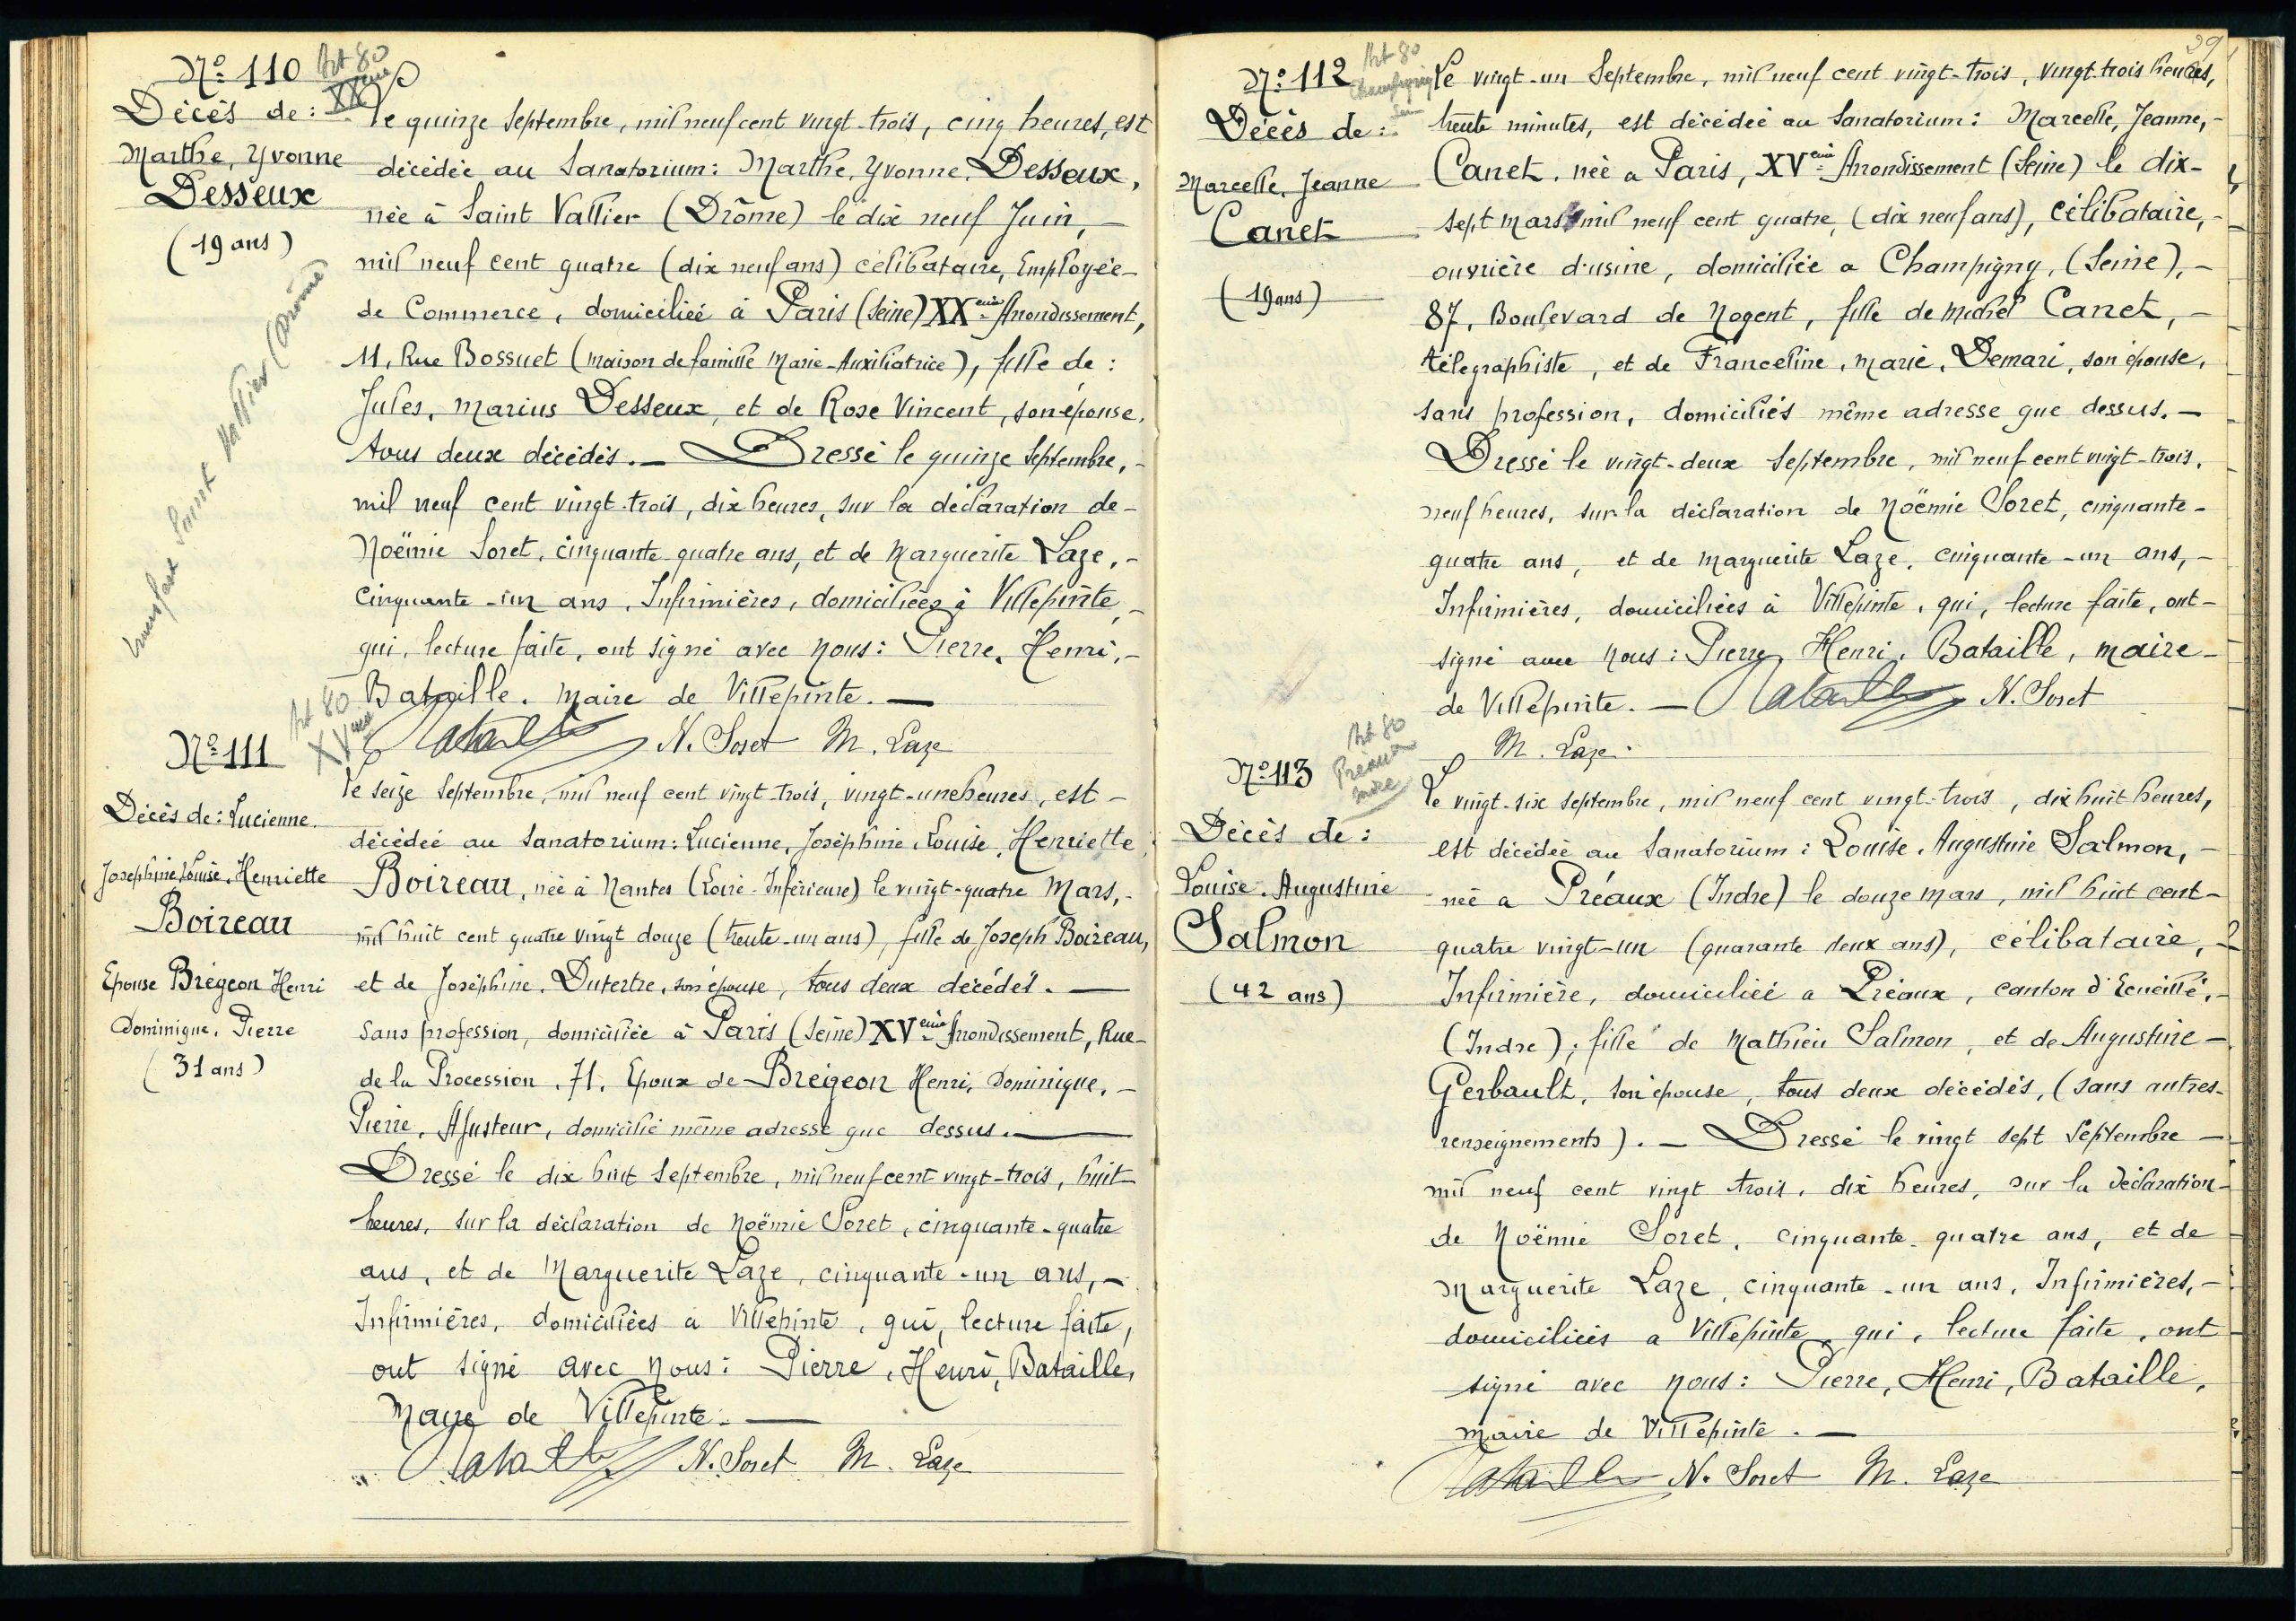 N° 110
Art 80
XXème
Décès de :
Marthe, Yvonne
Desseux
(19 ans)
Saint Vallier (Drôme)
Le quinze Septembre, mil neuf cent vingt-trois, cinq heures, est
décédée au Sanatorium : Marthe, Yvonne, Desseux,
née à Saint Vallier (Drôme) le dix neuf Juin, —
mil neuf cent quatre (dix neuf ans) célibataire, Employée —
de Commerce, domiciliée à Paris (Seine) XXème Arrondissement,
11, Rue Bossuet (maison de famille Marie-Auxiliatrice), fille de :
Jules, Marius Desseux, et de Rose Vincent, son épouse,
tous deux décédés. — Dressé le quinze Septembre, -
mil neuf cent vingt-trois, dix heures, sur la déclaration de -
Noëmie Soret, cinquante-quatre ans, et de Marguerite Laze, -
cinquante-un ans, Infirmières, domiciliées à Villepinte, -
qui, lecture faite, ont signé avec Nous : Pierre, Henri, -
Bataille, Maire de Villepinte. —
Bataille N. Soret M. Laze
N° 111
Art 80
XVème
Décès de : Lucienne,
Joséphine, Louise, Henriette
Boireau
Epouse Brégeon Henri
Dominique, Pierre
(31 ans)
Le seize Septembre, mil neuf cent vingt-trois, vingt-une heures, est -
décédée au Sanatorium : Lucienne, Joséphine, Louise, Henriette
Boireau, née à Nantes (Loire-Inférieure) le vingt-quatre Mars, -
mil huit cent quatre vingt douze (trente-un ans), fille de Joseph Boireau,
et de Joséphine, Dutertre, son épouse, tous deux décédés. —
Sans profession, domiciliée à Paris, (Seine) XVème Arrondissement, Rue -
de la Procession, 71, Epoux de Brégeon Henri, Dominique, -
Pierre, Ajusteur, domicilié même adresse que dessus. —
Dressé le dix huit Septembre, mil neuf cent vingt-trois, huit
heures, sur la déclaration de Noëmie Soret, cinquante-quatre
ans, et de Marguerite Laze, cinquante-un ans, —
Infirmières, domiciliées à Villepinte, qui, lecture faite,
ont signé avec Nous : Pierre, Henri, Bataille,
Maire de Villepinte. —
Bataille N. Soret M. Laze
39
N° 112
Art 80
Champigny
Décès de :
Marcelle, Jeanne
Canet
(19 ans)
Le vingt-un Septembre, mil neuf cent vingt-trois, vingt-trois heures,
trente minutes, est décédée au Sanatorium : Marcelle, Jeanne, -
Canet, née à Paris, XVème Arrondissement (Seine) le dix -
sept Mars mil neuf cent quatre, (dix neuf ans), célibataire, -
ouvrière d'usine, domiciliée à Champigny, (Seine), -
87, Boulevard de Nogent, fille de Michel Canet, -
télégraphiste, et de Franceline, Marie, Demari, son épouse,
sans profession, domiciliés même adresse que dessus. —
Dressé le vingt-deux Septembre, mil neuf cent vingt-trois,
neuf heures, sur la déclaration de Noëmie Soret, cinquante -
quatre ans, et de Marguerite Laze, cinquante-un ans, -
Infirmières, domiciliées à Villepinte, qui, lecture faite, ont -
signé avec Nous : Pierre, Henri, Bataille, maire -
de Villepinte. — Bataille N. Soret
M. Laze
N° 113
Art 80
Préaux
Indre
Décès de :
Louise, Augustine
Salmon
(42 ans)
Le vingt-six Septembre, mil neuf cent vingt-trois, dix huit heures,
est décédée au Sanatorium : Louise, Augustine Salmon, -
née à Préaux (Indre) le douze Mars, mil huit cent -
quatre vingt-un (quarante deux ans), célibataire, -
Infirmière, domiciliée à Préaux, canton d'Ecueillé, -
(Indre) ; fille de Mathieu Salmon, et de Augustine -
Gerbault, son épouse, tous deux décédés, (sans autres -
renseignements). — Dressé le vingt sept Septembre —
mil neuf cent vingt trois, dix heures, sur la déclaration -
de Noëmie Soret, cinquante-quatre ans, et de
Marguerite Laze, cinquante-un ans, Infirmières, -
domiciliées à Villepinte, qui, lecture faite, ont
signé avec Nous : Pierre, Henri, Bataille,
maire de Villepinte. —
Bataille N. Soret M. Laze